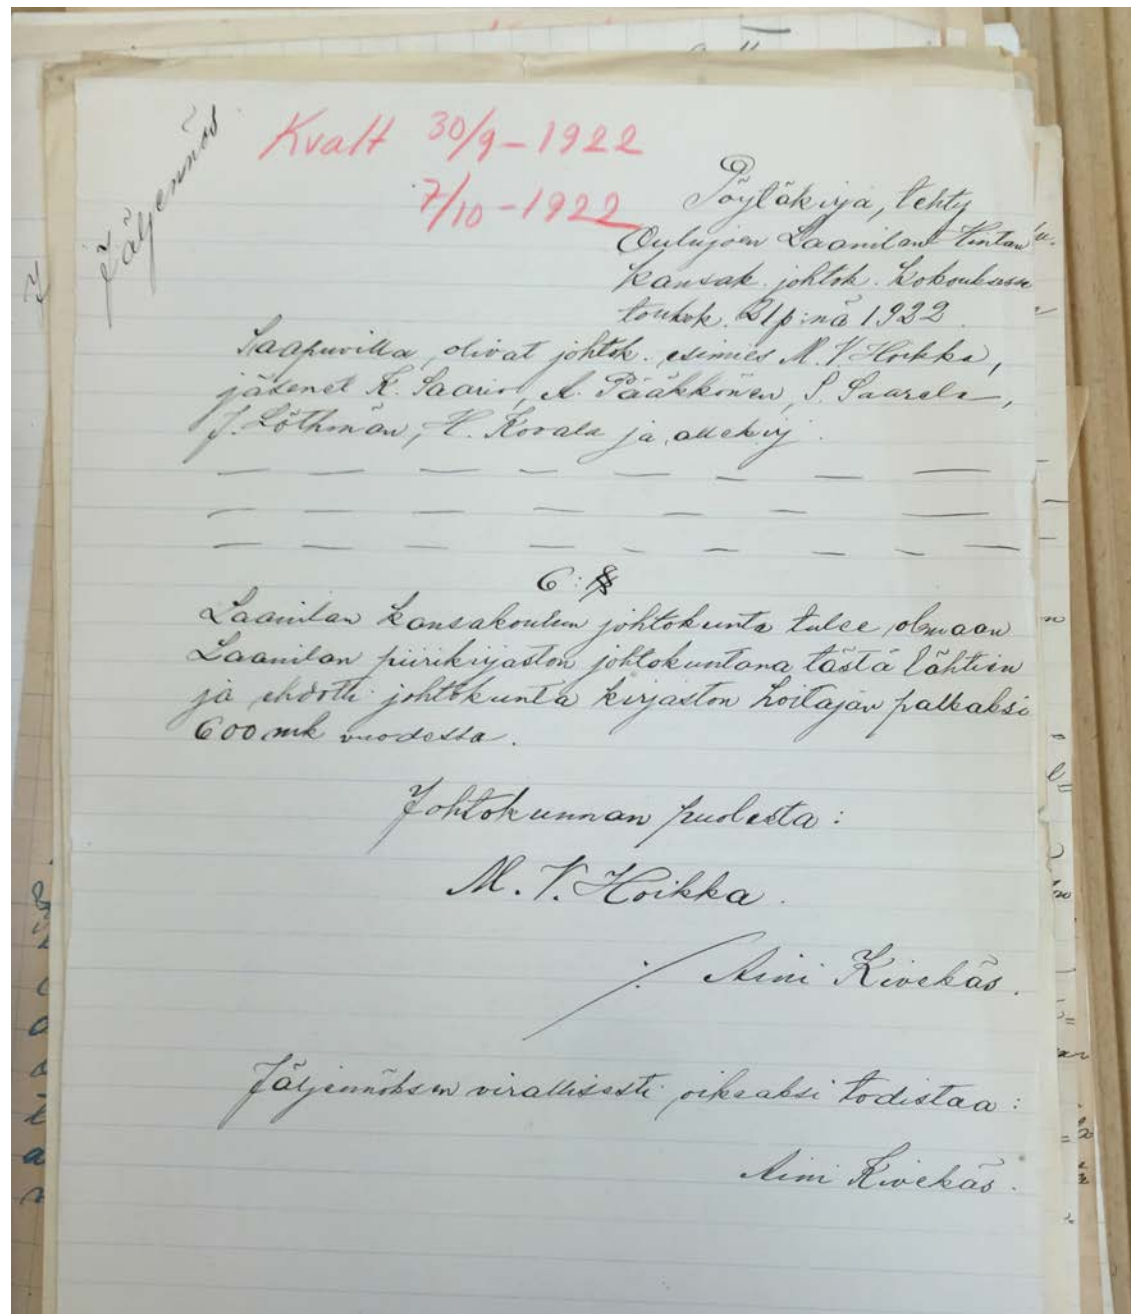 Jäljennös
Kvalt 30/9-1922
7/10-1922
Pöytäkirja, tehty
Oulujoen Laanilan Hintan
kansak. johtok. kokouksessa
toukok. 21 p:nä 1922.
Saapuvilla olivat johtok. esimies M. V. Hoikka,
jäsenet K. Saario, A. Pääkkönen, S. Saarela,
J. Löthman, H. Kovala ja allekirj.
— — — — — — — —
— — — — — — — —
— — — — — — — — —
6:§
Laanilan kansakoulun johtokunta tulee olemaan
Laanilan piirikirjaston johtokuntana tästä lähtien
ja ehdotti johtokunta kirjaston hoitajan palkaksi
600 mk vuodessa.
Johtokunnan puolesta:
M. V. Hoikka.
/. Aini Kivekäs.
Jäljennöksen virallisesti oikeaksi todistaa:
Aini Kivekäs.